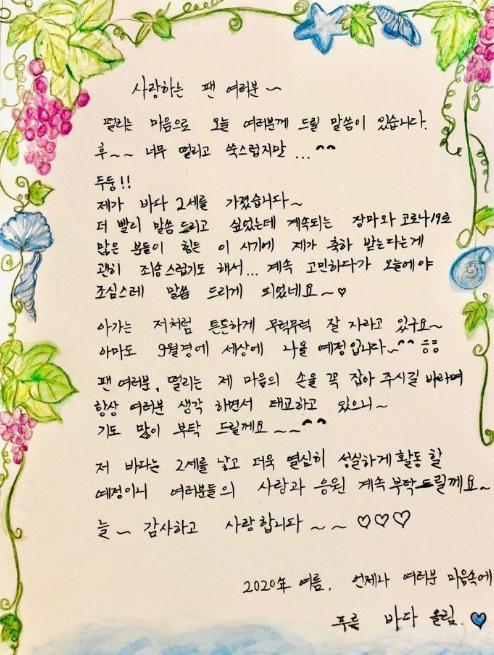 사랑하는 팬 여러분~
떨리는 마음으로 오늘 여러분께 드릴 말씀이 있습니다.
후~~ 너무 떨리고 쑥스럽지만 ...^^
두둥!!
제가 바다 2세를 가졌습니다~
더 빨리 말씀드리고 싶었는데 계속되는 장마와 코로나19로
많은 분들이 힘든 이 시기에 제가 축하 받는다는게
괜히 죄송스럽기도 해서... 계속 고민하다가 오늘에야
조심스레 말씀 드리게 되었네요~♡
아가는 저처럼 튼튼하게 무럭무럭 잘 자라고 있구요~
아마도 9월경에 세상에 나올 예정입니다~^^ ㅎㅎ
팬 여러분, 떨리는 제 마음의 손을 꼭 잡아 주시길 바라며
항상 여러분 생각 하면서 태교하고 있으니~
기도 많이 부탁 드릴께요~~^^
저 바다는 2세를 낳고 더욱 열심히 성실하게 활동할
예정이니 여러분들의 사랑과 응원 계속 부탁드릴께요~
늘~ 감사하고 사랑합니다~~♡♡♡
2020年 여름. 언제나 여러분 마음속에
푸를 바다 올림.♥